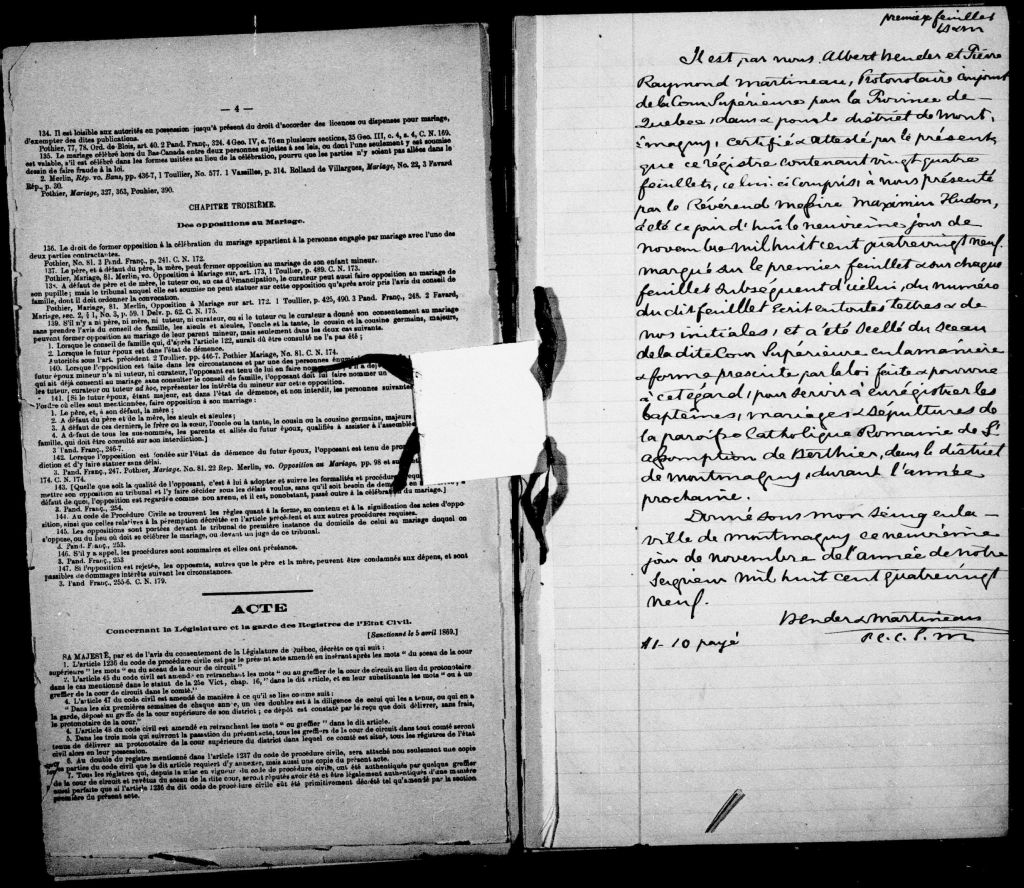 — 4 —
134. Il est loisible aux autorités en possession jusqu'à présent du droit d'accorder des licences ou dispenses pour mariage,
d'exempter des dites publications.
Pothier, 77, 78, Ord. de Blois, art 40. 2 Pand. Franç., 324. 4 Geo. IV, c. 76 en plusieurs sections, 35 Geo. III, c. 4, s. 4, C. N. 169.
135. Le mariage célébré hors du Bas-Canada entre deux personnes sujettes à ses lois, ou dont l'une seulement y est soumise
est valable, s'il est célébré dans les formes usitées au lieu de la célébration, pourvu que les parties n'y soient pas allées dans le
dessein de faire fraude à la loi.
2. Merlin, Rép. vo. Bans, pp. 436-7, 1 Toullier, No. 577. 1 Vazeilles, p. 314. Rolland de Villargues, Mariage, No. 22, 3 Favard
Rép., p. 30.
Pothier, Mariage, 327, 363, Pouhier, 390.
CHAPITRE TROISIÈME.
Des oppositions au Mariage.
136. Le droit de former opposition à la célébration du mariage appartient à la personne engagée par mariage avec l'une des
deux parties contractantes.
Pothier, No. 81. 3 Pand. Franç., p. 241. C. N. 172.
137. Le père, et à défaut du père, la mère, peut fermer opposition au mariage de son enfant mineur.
Pothier, Mariage, 81. Merlin, vo. Opposition à Mariage sur, art. 173, 1 Toullier, p. 489. C. N. 173.
138. A défaut de père et de mère, le tuteur ou, au cas d'émancipation, le curateur peut aussi faire opposition au mariage de
son pupille; mais le tribunal auquel elle est soumise ne peut statuer sur cette opposition qu'après avoir pris l'avis du conseil de
famille, dont il doit ordonner la convocation.
Pothier, Mariage, 81. Merlin, Opposition à Mariage sur art. 172. 1 Toullier, p. 425, 490. 3 Pand. Franç., 248. 2 Favard,
Mariage, sec. 2, § 1, No. 3, p. 59. 1 Delv. p. 62. C. N. 175.
139. S'il n'y a ni père, ni mère, ni tuteur, ni curateur, ou si le tuteur ou le curateur a donné son consentement au mariage
sans prendre l'avis du conseil de famille, les aïeuls et aïeules, l'oncle et la tante, le cousin et la cousine germains, majeurs,
peuvent former opposition au mariage de leur parent mineur, mais seulement dans les deux cas suivants.
1. Lorsque le conseil de famille qui, d'après l'article 122, aurait dû être consulté ne l'a pas été;
2. Lorsque le futur époux est dans l'état de démence.
Autorités sous l'art. précédent 2 Toullier, pp. 446-7. Pothier Mariage, No. 81. C. N. 174.
140. Lorsque l'opposition est faite dans les circonstances et par une des personnes
futur époux mineur n'a ni tuteur, ni curateur, l'opposant est tenu de lui en faire
qui ait déjà consenti au mariage sans consulter le conseil de famille, l'opposant doit lui faire nommer un
les tuteur, curateur ou tuteur ad hoc, représenter les intérêts du mineur sur cette opposition.
141. [Si le futur époux, étant majeur, est dans l'état de démence, et non interdit, les personnes suivantes
l'ordre où elles sont mentionnées, faire opposition à son mariage:
1. Le père, et, à son défaut, la mère;
2. A défaut du père et de la mère, les aïeuls et aïeules;
3. A défaut de ces derniers, le frère ou la sœur, l'oncle ou la tante, le cousin ou la cousine germains, majeurs
4. A défaut de tous les sus-nommés, les parents et alliés du futur époux, qualifiés à assister à l'assemblée
famille, qui doit être consulté sur son interdiction.]
3 Pand. Franç., 246-7.
142. Lorsque l'opposition est fondée sur l'état de démence du futur époux, l'opposant est tenu de
diction et d'y faire statuer sans délai.
3. Pand. Franç., 247. Pothier, Mariage, No. 81. 22 Rep. Merlin, vo. Opposition au Mariage, pp. 98 et
174. C. N. 174.
143. [Quelle que soit la qualité de l'opposant, c'est à lui à adopter et suivre les formalités et
mettre son opposition au tribunal et l'y faire décider sous les délais voulus, sans qu'il soit besoin de
défaut de quoi, l'opposition est regardée comme non avenu, et il est, nonobstant, passé outre à la célébration du mariage.]
3. Pand. Franç., 254.
144. Au code de Procédure Civile se trouvent les règles quant à la forme, au contenu et à la signification des actes d'oppo-
sition, ainsi que celles relatives à la péremption décrétée en article précédent et aux autres procédures requises.
145. Les oppositions sont portées devant le tribunal de première instance du domicile de celui au mariage duquel on
s'oppose, ou du lieu où doit se célébrer le mariage, ou devant un juge de ce tribunal.
3. Pand. Franç., 253.
146. S'il y a appel, les procédures sont sommaires et elles ont préséance.
3. Pand. Franç., 253
147. Si l'opposition est rejetée, les opposants, autres que le père et la mère, peuvent être condamnés aux dépens, et sont
passibles de dommages intérêts suivant les circonstances.
3. Pand. Franç., 255-6. C. N. 179.
ACTE
Concernant la Législature et la garde des Registres de l'Etat Civil.
[Sanctionné le 5 avril 1869.]
SA MAJESTÉ, par et de l'avis du consentement de la Législature de Québec, décrète ce qui suit:
1. L'article 1236 du code de procédure civile est par le présent acte amendé en insérant après les mots " du sceau de la cour
supérieure " les mots " ou du sceau de la cour de circuit "
2. L'article 45 du code civil est amendé en retranchant les mots " ou au greffier de la cour de circuit au lieu du protonotaire
dans le cas mentionné dans le statut de la 25e Vict, chap. 16, " dans le dit article, et en leur substituant les mots " ou à un
greffier de la cour de circuit dans le comté."
4. L'article 47 du code civil est amendé de manière à ce qu'il se lise comme suit:
" Dans les six premières semaines de chaque année, un des doubles est à la diligence de celui qui les a tenus, ou qui en a
la garde, déposé au greffe de la cour supérieure de son district; ce dépôt est constaté par le reçu que doit délivrer, sans frais,
le protonotaire de la cour."
4. L'article 48 du code civil est amendé en retranchant les mots " ou greffier " dans le dit article.
5. Dans les trois mois qui suivront la passation du présent acte, tous les greffiers de la cour de circuit dans tout comté seront
tenus de délivrer au protonotaire de la cour supérieure du district dans lequel ce comté est situé, tous les régistres de l'état
civil alors en leur possession.
6. Au double du registre mentionné dans l'article 1237 du code de procédure civile, sera attaché non seulement une copie
des parties du code civil que le dit article requiert d'y annexer, mais aussi une copie du présent acte.
7. Tous les régistres qui, depuis la mise en vigueur du code de procédure civile, ont été authentiqués par quelque greffier
de la cour de circuit et revêtus du sceau de la dite cour, seront réputés avoir été et être légalement authentiqués d'une manière
aussi parfaite que si l'article 1236 du dit code de procédure civile eût été primitivement décrété tel qu'amendé par la section
première du présent acte.
premier feuillet
Il est, par nous Albert Bender et Pierre
Raymond Martineau, Protonotaire conjoint
de la Cour Supérieure pour la Province de
Québec, dans & pour le district de Mont-
magny, certifié & attesté par le présent,
que ce régistre contenant vingt quatre
feuillets, celui-ci compris, à nous présenté
par le Révérend Messire Maximin Hudon,
a été ce jour d'hui le neuvième jour de
novembre mil huit cent quatre vingt neuf
marqué sur le premier feuillet & sur chaque
feuillet subséquent d'icelui, du numéro
du dit feuillet écrit en toutes lettres & de
nos initiales, et a été scellé du sceau
de la dite Cour Supérieure en la manière
& forme prescrite par la loi faite & pourvue
à cet égard, pour servir à enrégistrer les
baptêmes, mariages & sépultures de
la paroisse Catholique Romaine de St
assomption de Berthier, dans le district
de Montmagny, durant l'année
prochaine.
Donné sous mon seing en la
ville de Montmagny ce neuvième
jour de novembre de l'année de notre
Seigneur mil huit cent quatre vingt
neuf.
Bender & Martineau
P. C. C. S. M
$1-10 payé